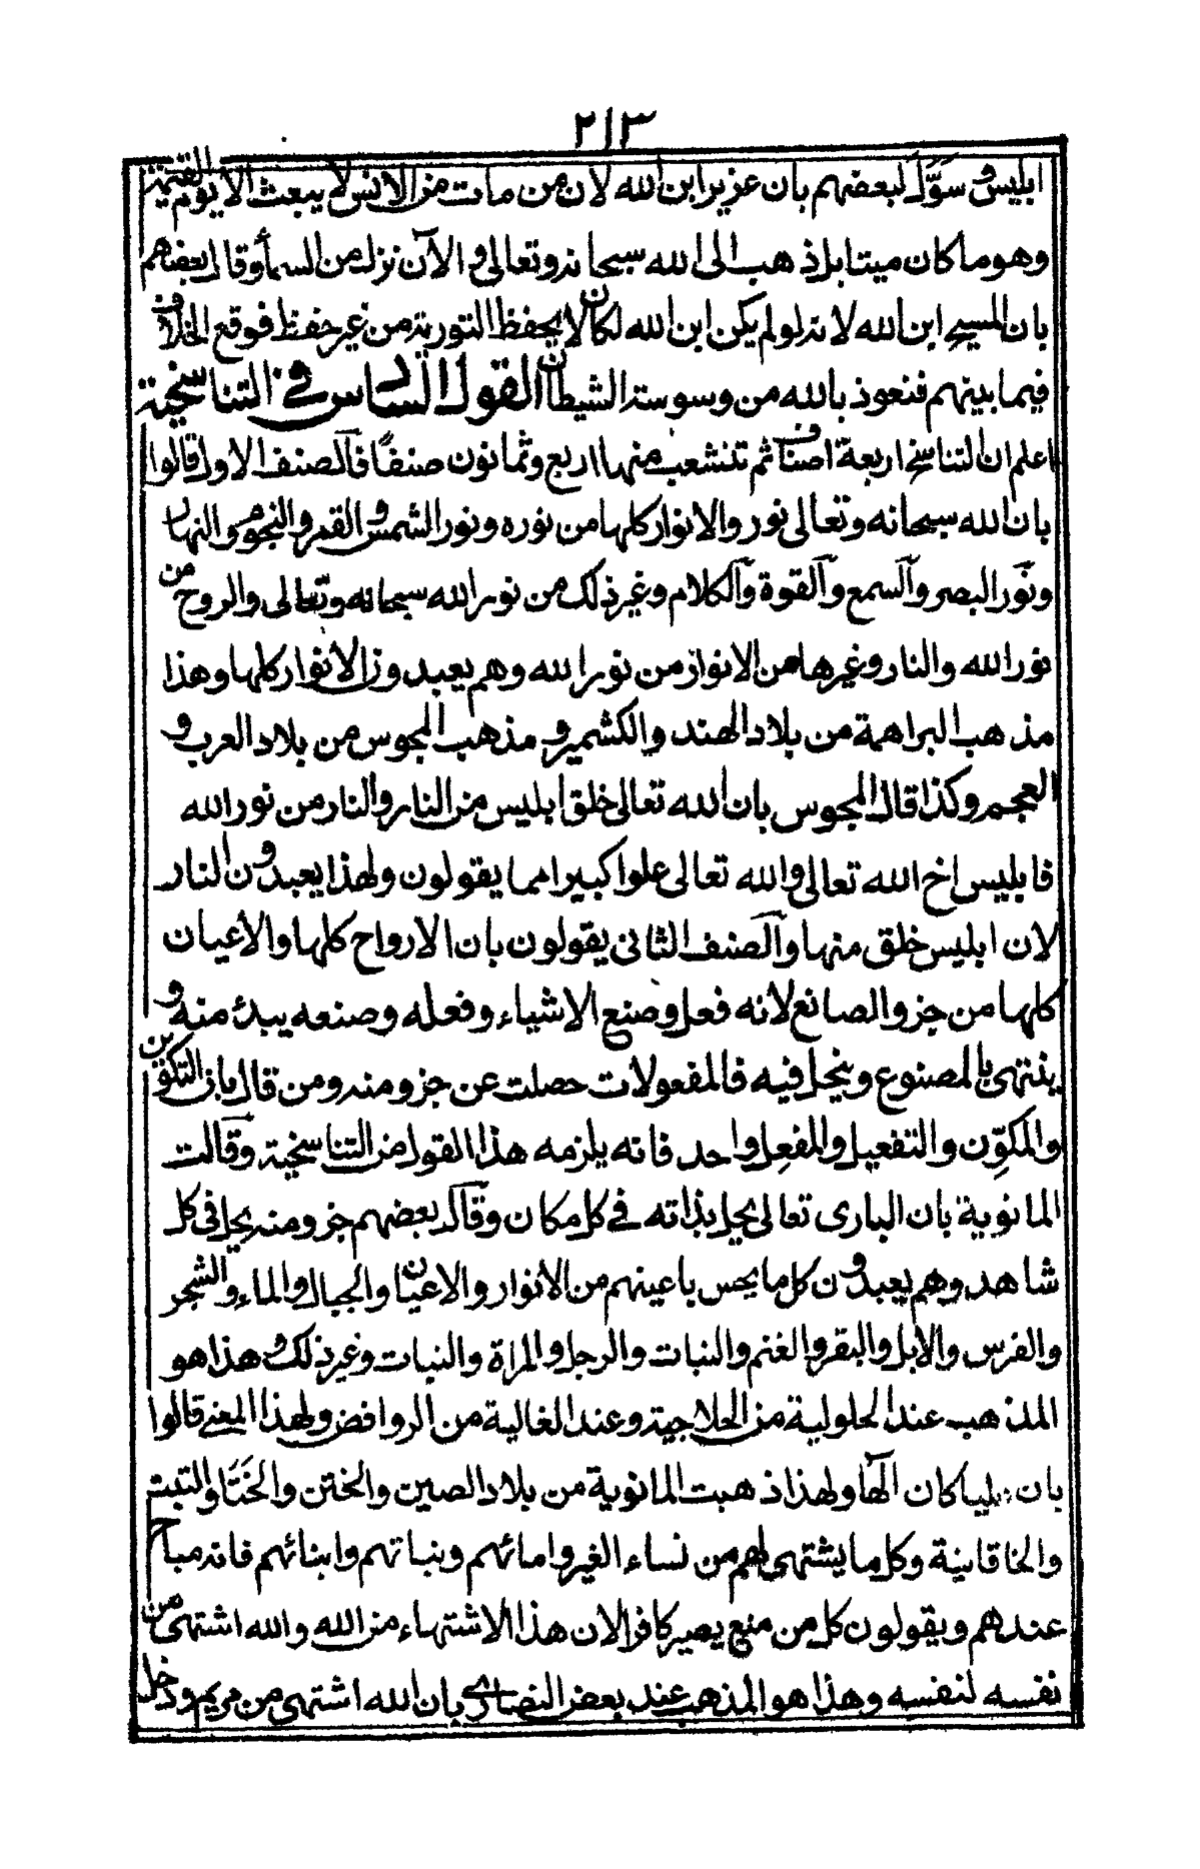 ٢١٣
ابليس وسَوَّلَ لبعضهم بان عزيرا ابن الله لان من مات من الانس لا يبعث الا يوم القيمة
وهو ما كان ميتا بل ذهب الى الله سبحانه وتعالى والآن نزل من السمأ وقال بعضهم
بان المسيح ابن الله لانه لو لم يكن ابن الله لكان لا يحفظ التورية من غير حفظ فوقع الخلاف
فيما بينهم فنعوذ بالله من وسوسة الشيطان القول السادس في التناسخية
اعلم ان التناسخ اربعة اصناف ثم تنشعب منها اربع وثمانون صنفًا فالصنف الاول قالوا
بان الله سبحانه وتعالى نور والانوار كلها من نوره ونور الشمس والقمر والنجوم والنهار
ونور البصر والسمع والقوة والكلام وغير ذلك من نور الله سبحانه وتعالى والروح من
نور الله والنار وغيرها من الانوار من نور الله وهم يعبدون الانوار كلها وهذا
مذهب البراهمة من بلاد الهند والكشمير و مذهب المجوس من بلاد العرب و
العجم وكذا قال المجوس بان الله تعالى خلق ابليس من النار والنار من نور الله
فابليس اخ الله تعالى والله تعالى علوا كبيرا مما يقولون ولهذا يعبدون النار
لان ابليس خلق منها والصنف الثانى يقولون بان الارواح كلها والاعيان
كلها من جزو الصانع لانه فعل وصنع الاشياء وفعله وصنعه يبدئ منه و
ينتهى بالمصنوع ويحل فيه فالمفعولات حصلت عن جزو منه ومن قال بان التكوين
والمكوِّن والتفعيل والمفعِل واحد فانه يلزمه هذا القول من التناسخية وقالت
المانوية بان البارى تعالى يحل بذاته في كل مكان وقال بعضهم جزو منه يحل في كل
شاهد وهم يعبدون كل ما يحس باعينهم من الانوار والاعيان والجبال والماء والشجر
والفرس والابل والبقر والغنم والنبات والرجل والمراة والنبات وغير ذلك وهذا هو
المذهب عند الحلولية من الحلاجية وعند الغالية من الروافض ولهذا المعنے قالوا
بان عليا كان الٰها ولهذا ذهبت المانوية من بلاد الصين والختن والخَتَا والتبت
والخاقانية وكل ما يشتهى لهم من نساء الغير وامائهم وبناتهم وابنائهم فانه مباح
عندهم ويقولون كل من منع يصير كافرا لان هذا الاشتهاء من الله والله اشتهى من
نفسه لنفسه وهذا هو المذهب عند بعض النصارى بان الله اشتهى من مريم ودخل